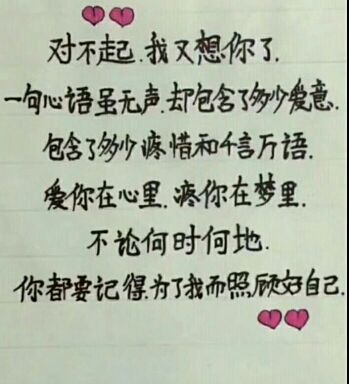 对不起.我又想你了.
一句心语虽无声.却包含了多少爱意.
包含了多少疼惜和千言万语.
爱你在心里.疼你在梦里.
不论何时何地.
你都要记得.为了我而照顾好自己.